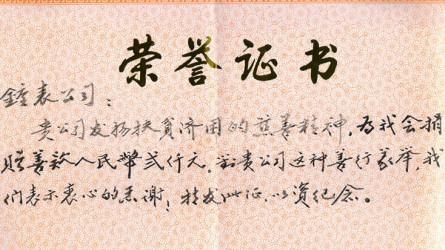 荣誉证书
鐘表公司:
贵公司发扬扶贫济困的慈善精神,为我会捐
赠善款人民幣贰仟元,對贵公司这种善行義举,我
们表示衷心的感谢!特发此证,以资纪念。